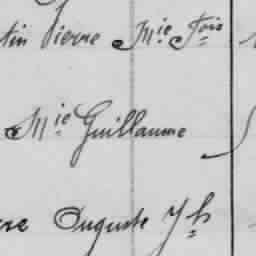 tin Pierre Mie Fois
Mie Guillaume
re Auguste Jh